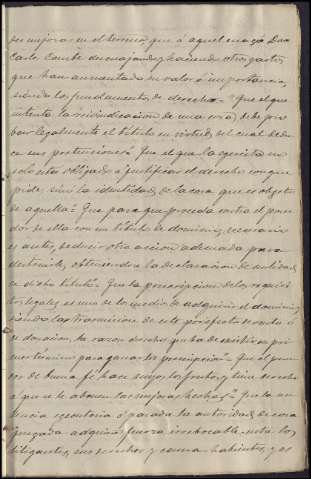 de mejoras en el terreno que á aquel cargo Don
Carlos, desmajando y haciendo otros gastos
que han aumentado su valor é importancia,
siendo los fundamentos de derecho = Que el que
intenta la reivindicacion de una cosa debe pro
bar legalmente el título en virtud del cual dedu
ce sus pretensiones = Que el que la ejercita no
solo está obligado á justificar el derecho con que
pide, sino la identidad de la cosa que es objeto
de aquella = Que para que proceda contra el posee
dor de ella con un título de dominio, es necesario
antes, deducir otra accion adecuada para
destruirle, obteniendo la declaracion de nulidad
de dicho título = Que la prescripcion de los requisi
tos legales, es uno de los medios de adquirir el dominio,
siendo la transmision de este por efecto de venta ó
de donacion, la razon derecha que ha de existir en pri
mer término para ganar la prescripcion = Que el posee
dor de buena fé hace suyos los frutos, y tiene derecho
á que se le abonen las mejoras hechas = Que la sen
tencia ejecutoria ó pasada en autoridad de cosa
juzgada adquiere fuerza irrevocable entre los
litigantes, sus derechos y causa habientes, y es